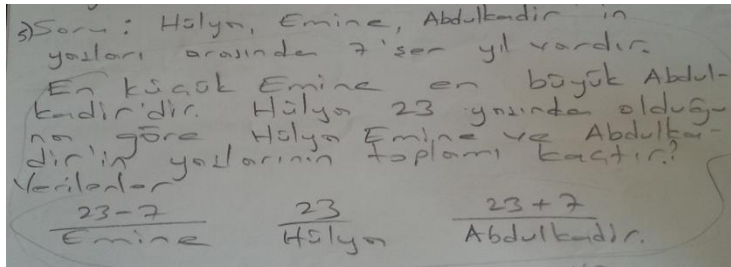 5) Soru: Hülya, Emine, Abdulkadir'in
yaşları arasında 7'şer yıl vardır.
En küçük Emine en büyük Abdul-
kadir'dir. Hülya 23 yaşında olduğu-
na göre Hülya Emine ve Abdulka-
dir'in yaşlarının toplamı kaçtır?
Verilenler
23-7 23 23+7
Emine Hülya Abdulkadir.